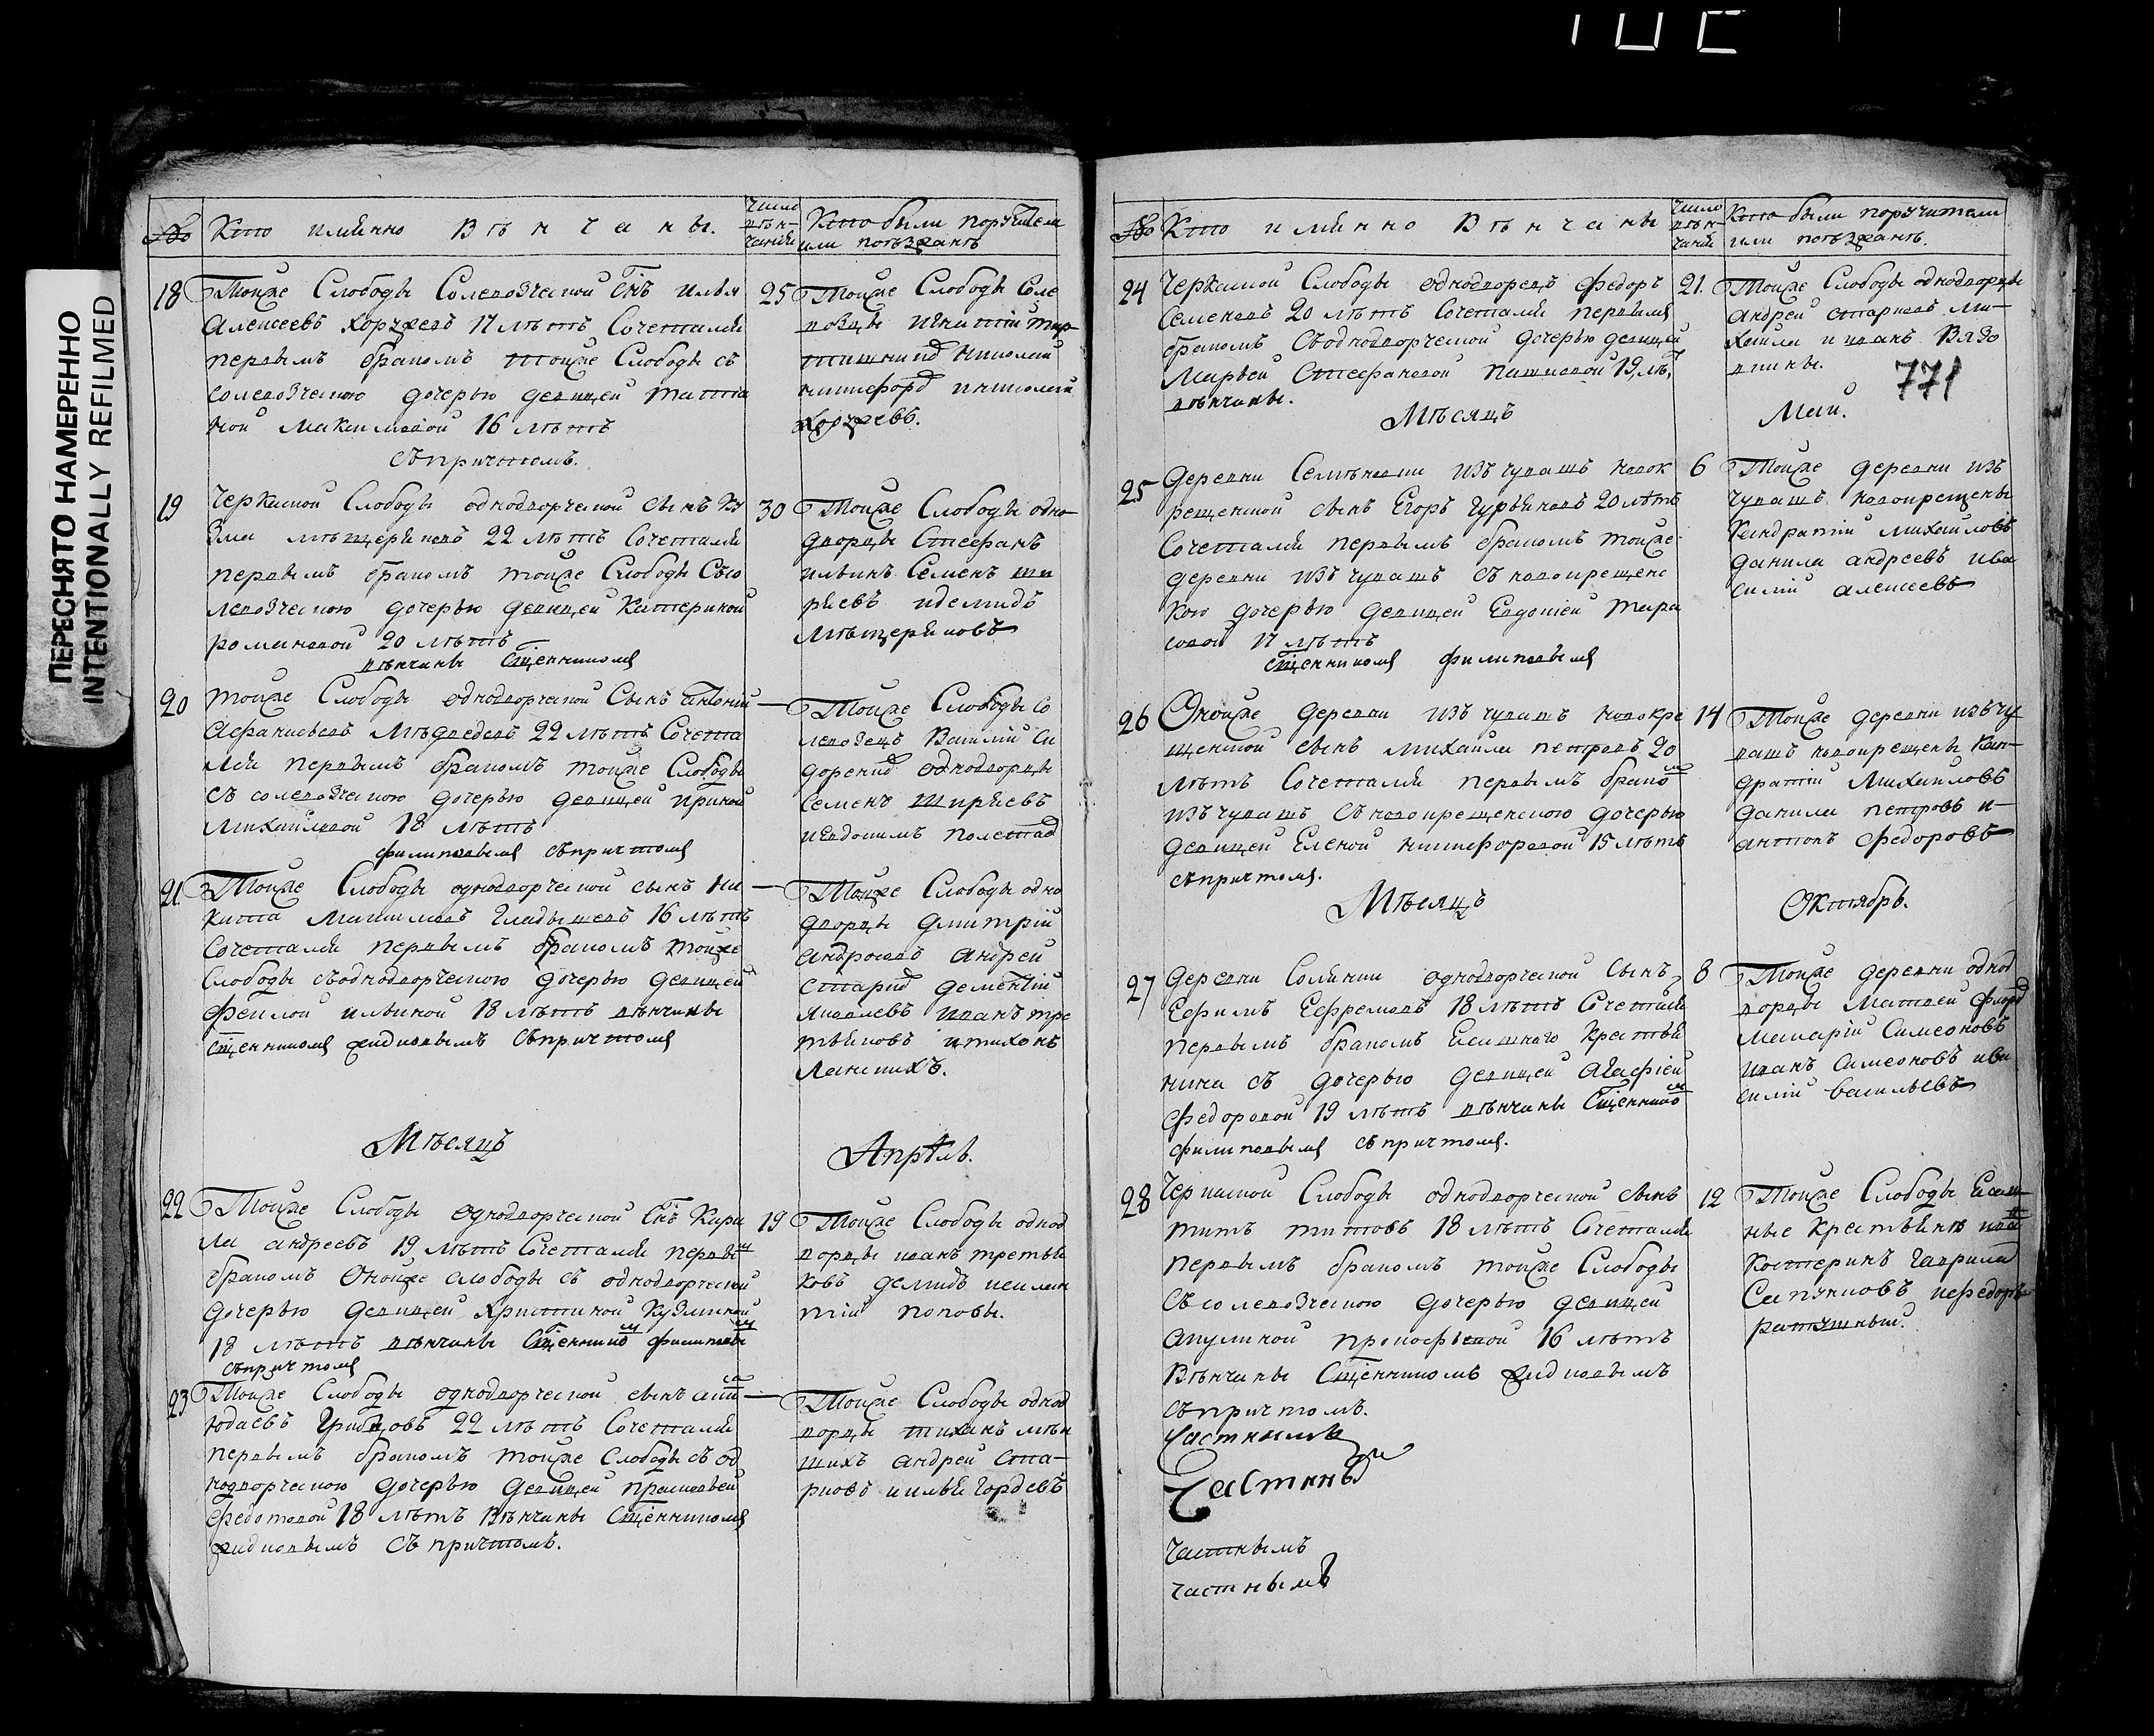 ПЕРЕСНЯТО НАМЕРЕННО
INTENTIONALLY REFILMED
№ Кто имянно Вѣнчаны. Число вѣнчаний Кто были поручители или поѣзжанѣ
18 Тойже Слободы Солевозческой Снъ Илья
Алексеевъ Корчжевъ 17 лѣтъ Сочеталйя
первымъ бракомъ тойже Слободы съ
солевозческою дочерью девицей Татья
ной Максимовой 16 лѣтъ
съ причтомъ.
25 Тойже Слободы Соле
возцы Игнатій
Николай
никифоръ
19 Черкаской Слободы однодворческой сынъ Ку
зма Мѣщеряковъ 22 лѣтъ Сочеталйя
первымъ бракомъ тойже Слободы Ссо
левозческою дочерью девицей Катериной
романовой 20 лѣтъ
вѣнчаны Сщенникомъ
30 Тойже Слободы одно
дворцы Стефанъ
ильинъ Семенъ ши
ряевъ идемидъ
Мѣщеряковъ
20 тойже Слободы однодворческой Сынъ Антоній
Афанасьевъ Мѣдведевъ 22 лѣтъ Сочета
лйя первымъ бракомъ тойже Слободы
съ солевозческою дочерью девицей ириной
Михайловой 18 лѣтъ
филиповымъ съпричтомъ
Тойже Слободы Со
левозецъ Василий Си
доренко однодворцы
Семенъ Ширяевъ
иевдокимъ
21 Тойже Слободы однодворческой сынъ Ни
кита Максимовъ Гладышевъ 16 лѣтъ
Сочеталйя первымъ бракомъ тойже
Слободы съоднодворческою дочерью девицей
Феклой ильиной 18 лѣтъ вѣнчаны
Сщенникомъ жидковымъ Съпричтомъ
Тойже Слободы одно
дворцы Дмитрій
Андросовъ Андрей
Старковъ Дементій
Яковлевъ иванъ тре
тьяковъ итихонъ
Мѣсяцъ Апрѣль.
22 Тойже Слободы однодворческой Снъ Кири
ла андреевъ 19 лѣтъ Сочеталйя первы
бракомъ Онойже слободы съ однодворческой
дочерью девицей Христиной Кузминой
18 лѣтъ вѣнчаны Сщенникомъ филиповы
съпричтомъ
19 Тойже Слободы однод
ворцы иванъ третья
ковъ демидъ
тій поповы.
23 Тойже Слободы однодворческой сынъ
юдаевъ Грибцовъ 22 лѣтъ Сочеталйя
первымъ бракомъ тойже Слободы съ од
нодворческою дочерью девицей прасковьей
федотовой 18 лѣтъ Вѣнчаны Сщенникомъ
жидковымъ Съ причтомъ.
Тойже Слободы однод
ворцы тихонъ
андрей Ста
рковъ иилья Гордеевъ
№ Кто имянно Вѣнчаны Число вѣнчаний Кто были поручители или поѣзжанѣ.
771
24 Черкаской Слободы однодворецъ Федоръ
Семеновъ 20 лѣтъ Сочеталйя первымъ
бракомъ Съоднодворческой дочерью девицей
Марьей Стефановой 19 лѣ
вѣнчаны.
21. Тойже Слободы однодворцы
Андрей Старковъ Ми
хайла и иванъ Вязо
вкины.
Мѣсяцъ Май.
25 Деревни Семѣновки изъ чувашъ новок
рещенской сынъ Егоръ Гурьяновъ 20 лѣтъ
Сочеталйя первымъ бракомъ тойже
деревни изъ чувашъ съ новокрещенс
кою дочерью девицей Евдокией Тара
совой 17 лѣтъ
Сщенникомъ филиповымъ
6 Тойже деревни изъ
чувашъ новокрещены
Кандратій Михайловъ
данила андреевъ ива
силій алексеевъ
26 Онойже деревни изъ чувашъ новокре
щенской сынъ михайла петровъ 20
лѣтъ Сочеталйя первымъ брако
изъ чувашъ съ новокрещенскою дочерью
девицей Еленой никифоровой 15 лѣтъ
съпричтомъ.
14 Тойже деревни изъ чу
вашъ новокрещены Кан
дратій Михайловъ
данила петровъ и
антонъ федоровъ
Мѣсяцъ Октябрь.
27 Деревни Солянки однодворческой сынъ
Ефимъ Ефремовъ 18 лѣтъ Сочеталйя
первымъ бракомъ Ясашного Крестья
нина съ дочерью девицей Агафией
федоровой 19 лѣтъ вѣнчаны Сщеннико
филиповымъ съпричтомъ.
8 Тойже деревни однод
ворцы Матвей
Макарій Симеоновъ
иванъ Симеоновъ ива
силій васильевъ
28 Черкаской Слободы однодворческой сынъ
титъ титовъ 18 лѣтъ Сочеталйя
первымъ бракомъ тойже Слободы
съсолевозческою дочерью девицей
Акулиной прокофьевой 16 лѣтъ
Вѣнчаны Сщенникомъ жидковымъ
съпричтомъ.
12 Тойже Слободы Ясаш
ные крестьяне ива
Костеринъ Гаврила
Сапуновъ ифедоръ
Частнымъ
Частны
частнымъ
частнымъ